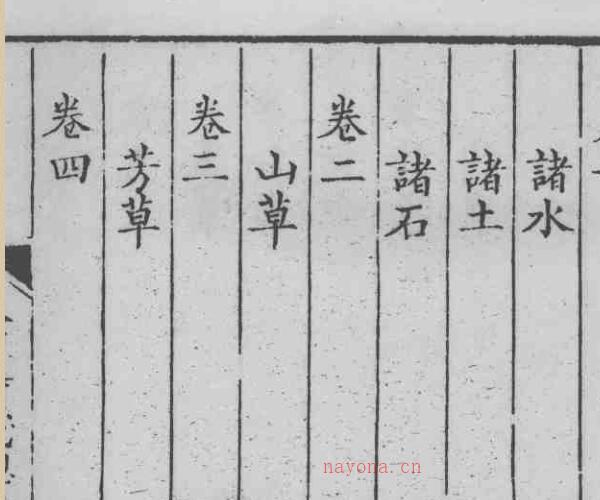 諸水
諸土
諸石
卷二
山草
卷三
芳草
卷四
nayona.cn